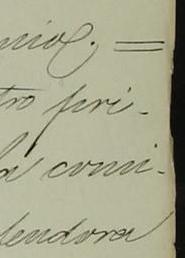 nio. =
tro pri-
la comi-
lendora